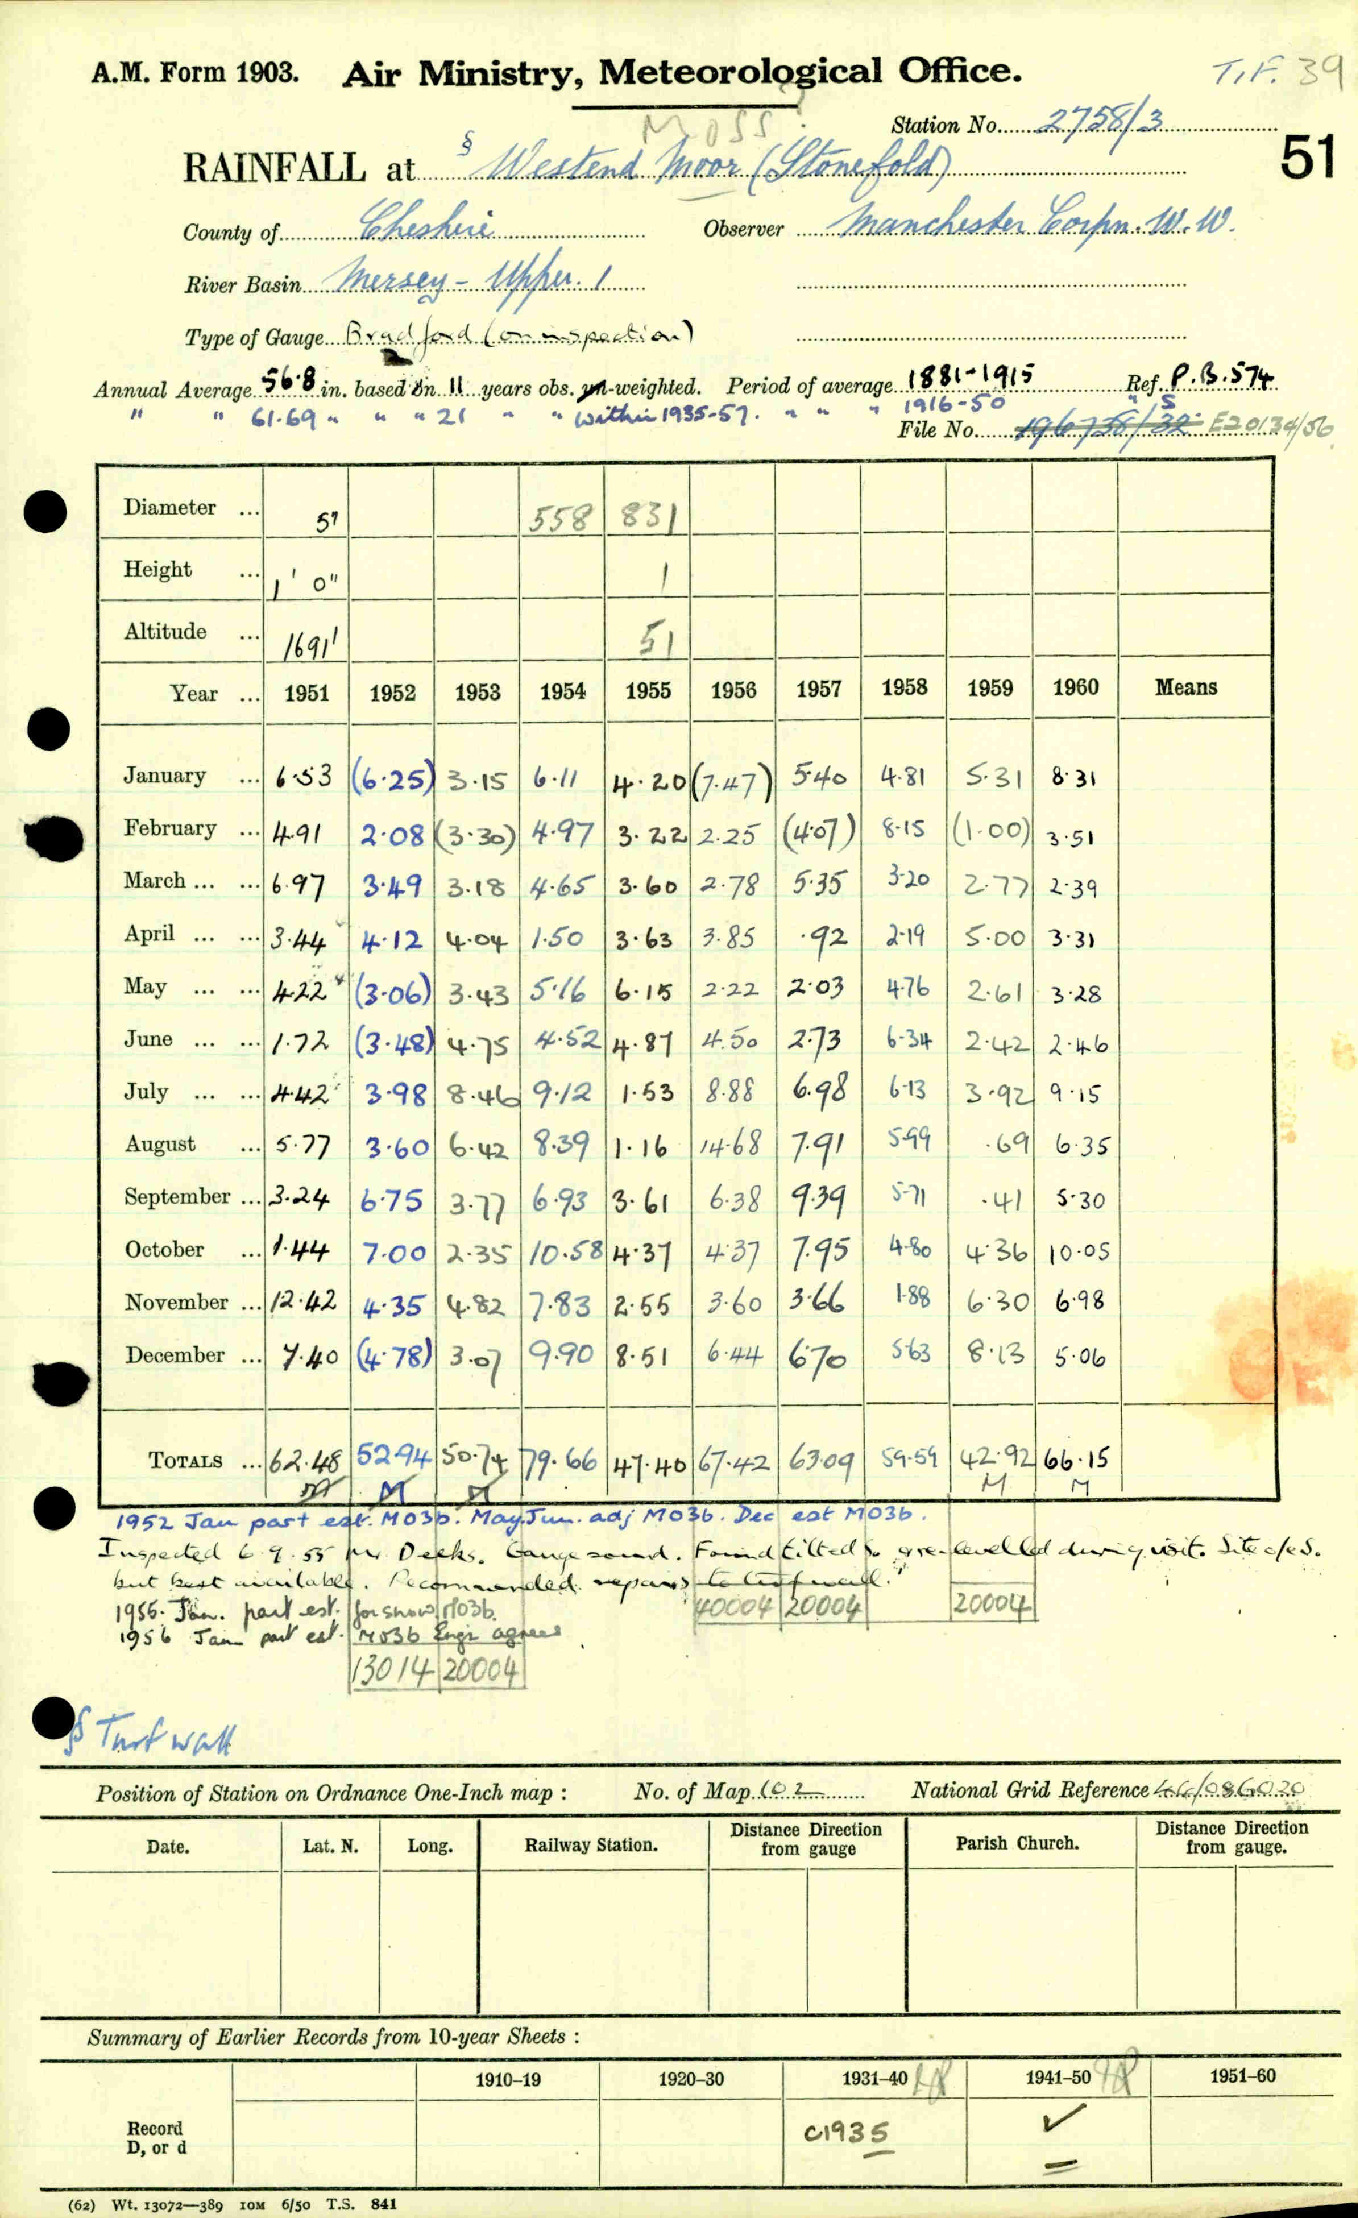 A.M. Form 1903. Air Ministry, Meteorological Office. T.F. 39
Moss?
Station No. 2758/3
51
RAINFALL at § Westend Moor (Stonefold)
County of Cheshire Observer Manchester Corpn. W.W.
River Basin Mersey - Upper. 1
Type of Gauge Bradford (on inspection)
Annual Average 56.8 in. based on 11 years obs. un-weighted. Period of average 1881-1915 Ref. P.B.574
" " 61.69 " " " 21 " " within 1935-57. " " " 1916-50 " S
File No. 196758/32 E20134/56
Diameter ... 5" 558 831
Height ... 1' 0" 1
Altitude ... 1691' 51
Year ... 1951 1952 1953 1954 1955 1956 1957 1958 1959 1960 Means
January ... 6.53 (6.25) 3.15 6.11 4.20 (7.47) 5.40 4.81 5.31 8.31
February ... 4.91 2.08 (3.30) 4.97 3.22 2.25 (4.07) 8.15 (1.00) 3.51
March ... ... 6.97 3.49 3.18 4.65 3.60 2.78 5.35 3.20 2.77 2.39
April ... ... 3.44 4.12 4.04 1.50 3.63 3.85 .92 2.19 5.00 3.31
May ... ... 4.22 (3.06) 3.43 5.16 6.15 2.22 2.03 4.76 2.61 3.28
June ... ... 1.72 (3.48) 4.75 4.52 4.87 4.50 2.73 6.34 2.42 2.46
July ... ... 4.42 3.98 8.46 9.12 1.53 8.88 6.98 6.13 3.92 9.15
August ... 5.77 3.60 6.42 8.39 1.16 14.68 7.91 5.99 .69 6.35
September ... 3.24 6.75 3.77 6.93 3.61 6.38 9.39 5.71 .41 5.30
October ... 1.44 7.00 2.35 10.58 4.37 4.37 7.95 4.80 4.36 10.05
November ... 12.42 4.35 4.82 7.83 2.55 3.60 3.66 1.88 6.30 6.98
December ... 7.40 (4.78) 3.07 9.90 8.51 6.44 6.70 5.63 8.13 5.06
TOTALS ... 62.48 52.94 50.74 79.66 47.40 67.42 63.09 59.59 42.92 66.15
M M M M M
1952 Jan part est. M03b. May, Jun. adj M03b. Dec est M03b.
Inspected 6.9.55 Mr. Deeks. Gauge sound. Found tilted & re-levelled during visit. Site o/e S.
but best available. Recommended repairs to turf wall."
1955. Jan. part est. for snow M03b. 40004 20004 20004
1956 Jan part est. M03b Engr agrees
13014 20004
§ Turf wall
Position of Station on Ordnance One-Inch map : No. of Map 102 National Grid Reference 44/086020
Date. Lat. N. Long. Railway Station. Distance Direction from gauge Parish Church. Distance Direction from gauge.
Summary of Earlier Records from 10-year Sheets :
1910-19 1920-30 1931-40 1941-50 1951-60
Record D, or d c1935 ✓
(62) Wt. 13072—389 10M 6/50 T.S. 841